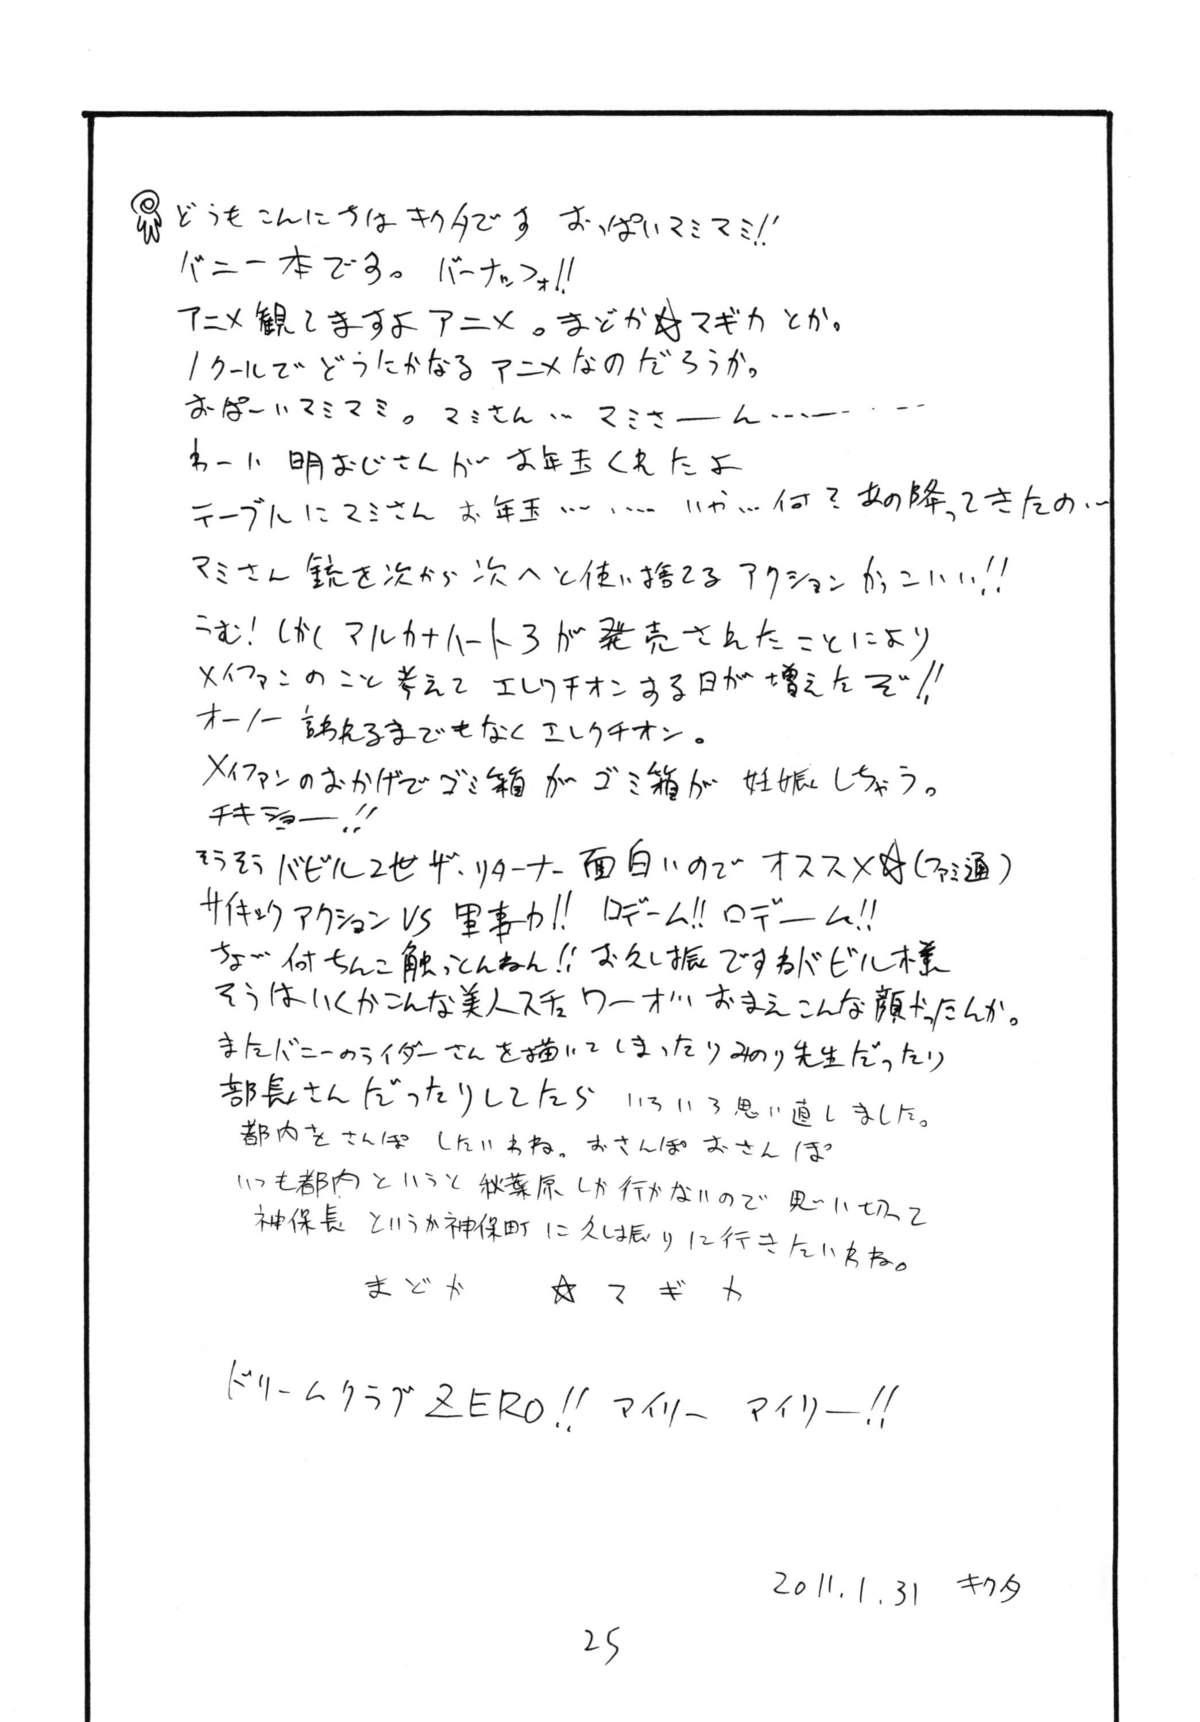 どうもこんにちはキクタです おっぱいマミマミ!!
バニー本です。 バーナッフォ!!
アニメ観てますよアニメ。まどか☆マギカとか。
1クールでどうにかなるアニメなのだろうか。
おぱーいマミマミ。マミさん… マミさーん…
わーい 明おじさんが お年玉くれたよ
テーブルにマミさん お年玉…… いや…何であの降ってきたの…
マミさん 銃を次から次へと使い捨てるアクションかっこいい!!
うむ! しかしアルカナハート3が発売されたことにより
メイファンのこと考えて エレクチオンする日が増えたぞ!!
オーノー 訴えるまでもなくエレクチオン。
メイファンのおかげでゴミ箱が ゴミ箱が 妊娠しちゃう。
チキショー!!
そうそうバビル2世ザ・リターナー 面白いのでオススメ☆(ファミ通)
サイキックアクションVS軍事力!! ロデーム!! ロデーム!!
ちょ…何ちんこ触っとんねん!! お久し振ですねバビル様
そうはいくかこんな美人 ワーオ!! おまえこんな顔だったんか。
またバニーのライダーさんを描いてしまったりみのり先生だったり
部長さんだったりしてたら いろいろ思い直しました。
都内をさんぽ したいわね。おさんぽおさんぽ
いつも都内というと 秋葉原しか行かないので 思い切って
神保長 というか神保町に久し振りに行きたいわね。
まどか ☆マギカ
ドリームクラブZERO!! アイリー アイリー!!
2011.1.31 キクタ
25